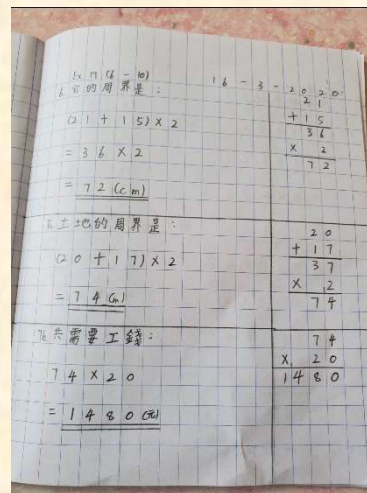 Ex 17 (6 - 10)
16 - 3 - 2020
6. 它的周界是：
(21 + 15) × 2
= 36 × 2
= 72 (cm)
21
+ 15
36
× 2
72
土地的周界是：
(20 + 17) × 2
= 74 (m)
20
+ 17
37
× 2
74
7b. 共需要工錢：
74 × 20
= 1480 (元)
74
× 20
1480